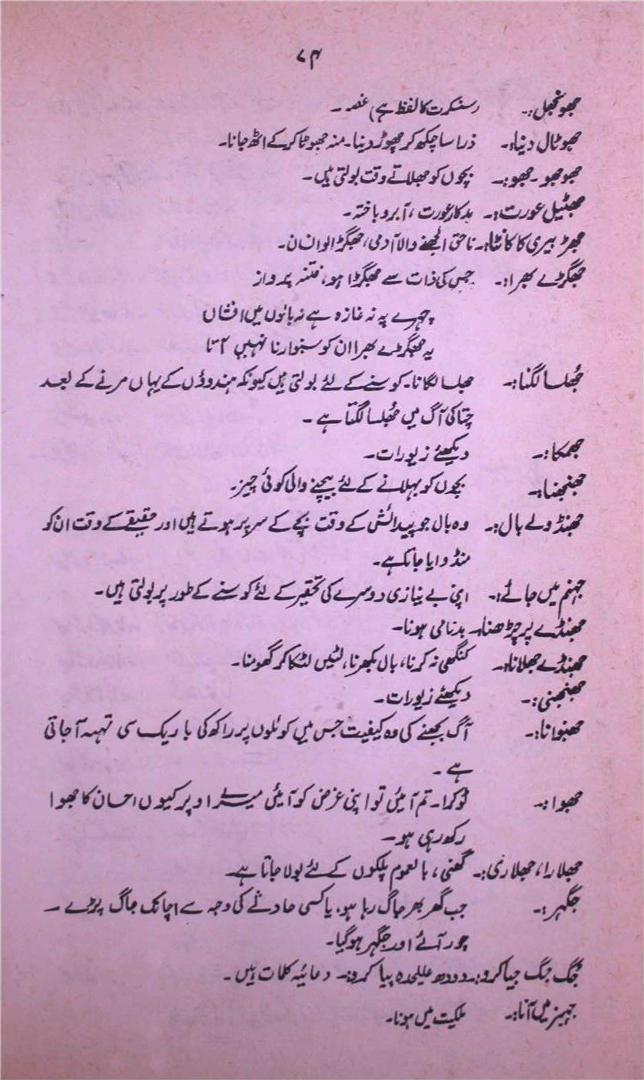 ۷۴
جھونجھل:۔ (سنسکرت کا لفظ ہے) غصہ۔
جھوٹال دینا:۔ ذرا سا چکھ کر چھوڑ دینا۔ منہ جھوٹا کر کے اٹھ جانا۔
جھوجھو۔جھو:۔ بچوں کو جھلاتے وقت بولتی ہیں۔
جھٹیل عورت:۔ بدکار عورت، آبرو باختہ۔
جھڑ بیری کا کانٹا:۔ ناحق الجھنے والا آدمی، جھگڑالو انسان۔
جھگڑے بھرا:۔ جس کی ذات سے جھگڑا ہو، فتنہ پرداز
چہرے پہ نہ غازہ ہے نہ بالوں میں افشاں
یہ جھگڑے بھرا ان کو سنوارنا نہیں آتا
جُھلسا لگنا:۔ جھلسا لگانا۔ کوسنے کے لئے بولتی ہیں کیونکہ ہندوؤں کے یہاں مرنے کے بعد
چتا کی آگ میں جُھلسا لگتا ہے۔
جھمکا:۔ دیکھئے زیورات۔
جھنجھنا:۔ بچوں کو بہلانے کے لئے بیچنے والی کوئی چیز۔
جھنڈولے بال:۔ وہ بال جو پیدائش کے وقت بچے کے سر پر ہوتے ہیں اور عقیقے کے وقت ان کو
منڈوایا جاتا ہے۔
جہنم میں جائے:۔ اپنی بے نیازی دوسرے کی تحقیر کے لئے کوسنے کے طور پر بولتی ہیں۔
جھنڈے پر چڑھنا:۔ بدنامی ہونا۔
جھنڈے جھلانا:۔ کنگھی نہ کرنا، بال بکھرنا، لٹیں لٹکا کر گھومنا۔
جھنجھنی:۔ دیکھئے زیورات۔
جھنوانا:۔ آگ بجھنے کی وہ کیفیت جس میں کوئلوں پر راکھ کی باریک سی تہہ آ جاتی
ہے۔
جھوا:۔ ٹوکرا۔ تم آئیں تو اپنی غرض کو آئیں میرے اوپر کیوں احسان کا جھوا
رکھ رہی ہو۔
جھلارا، جھلاری:۔ گھنی، بالعموم پلکوں کے لئے بولا جاتا ہے۔
جگہر:۔ جب گھر بھر جاگ رہا ہو، یا کسی حادثے کی وجہ سے اچانک جاگ پڑے۔
چور آئے اور جگہر ہو گیا۔
جگ جگ جیا کرو:۔ دودھ ملیدہ پیا کرو:۔ دعائیہ کلمات ہیں۔
جہیز میں آنا:۔ ملکیت میں ہونا۔